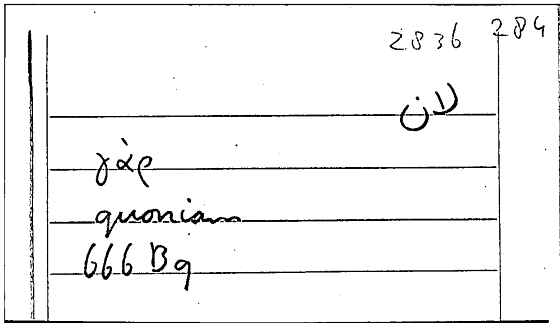 2836 284
لان
γὰρ
quoniam
666 B9